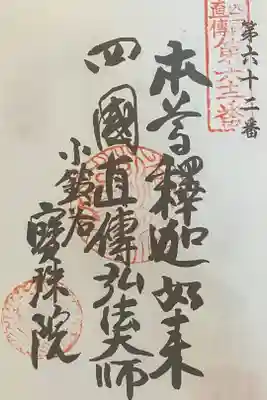 第六十二番
本尊釋迦如来
四國直傳弘法大師
小鈴谷
寶珠院